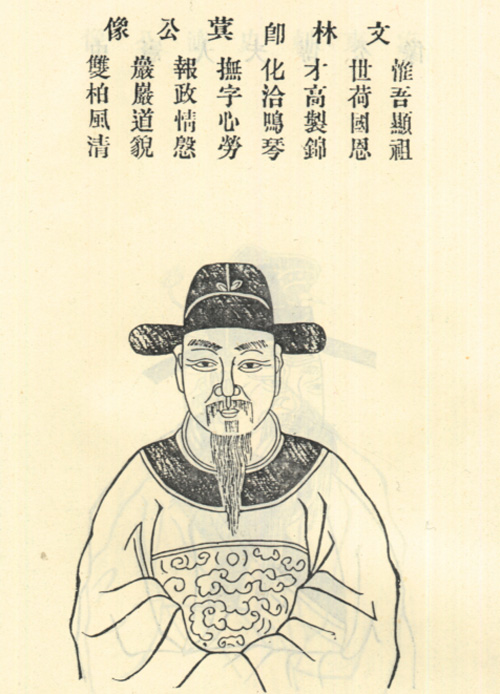 文林郎蓂公像
惟吾顯祖
世荷國恩
才高製錦
化洽鳴琴
撫字心勞
報政情慇
巖巖道貌
雙柏風清